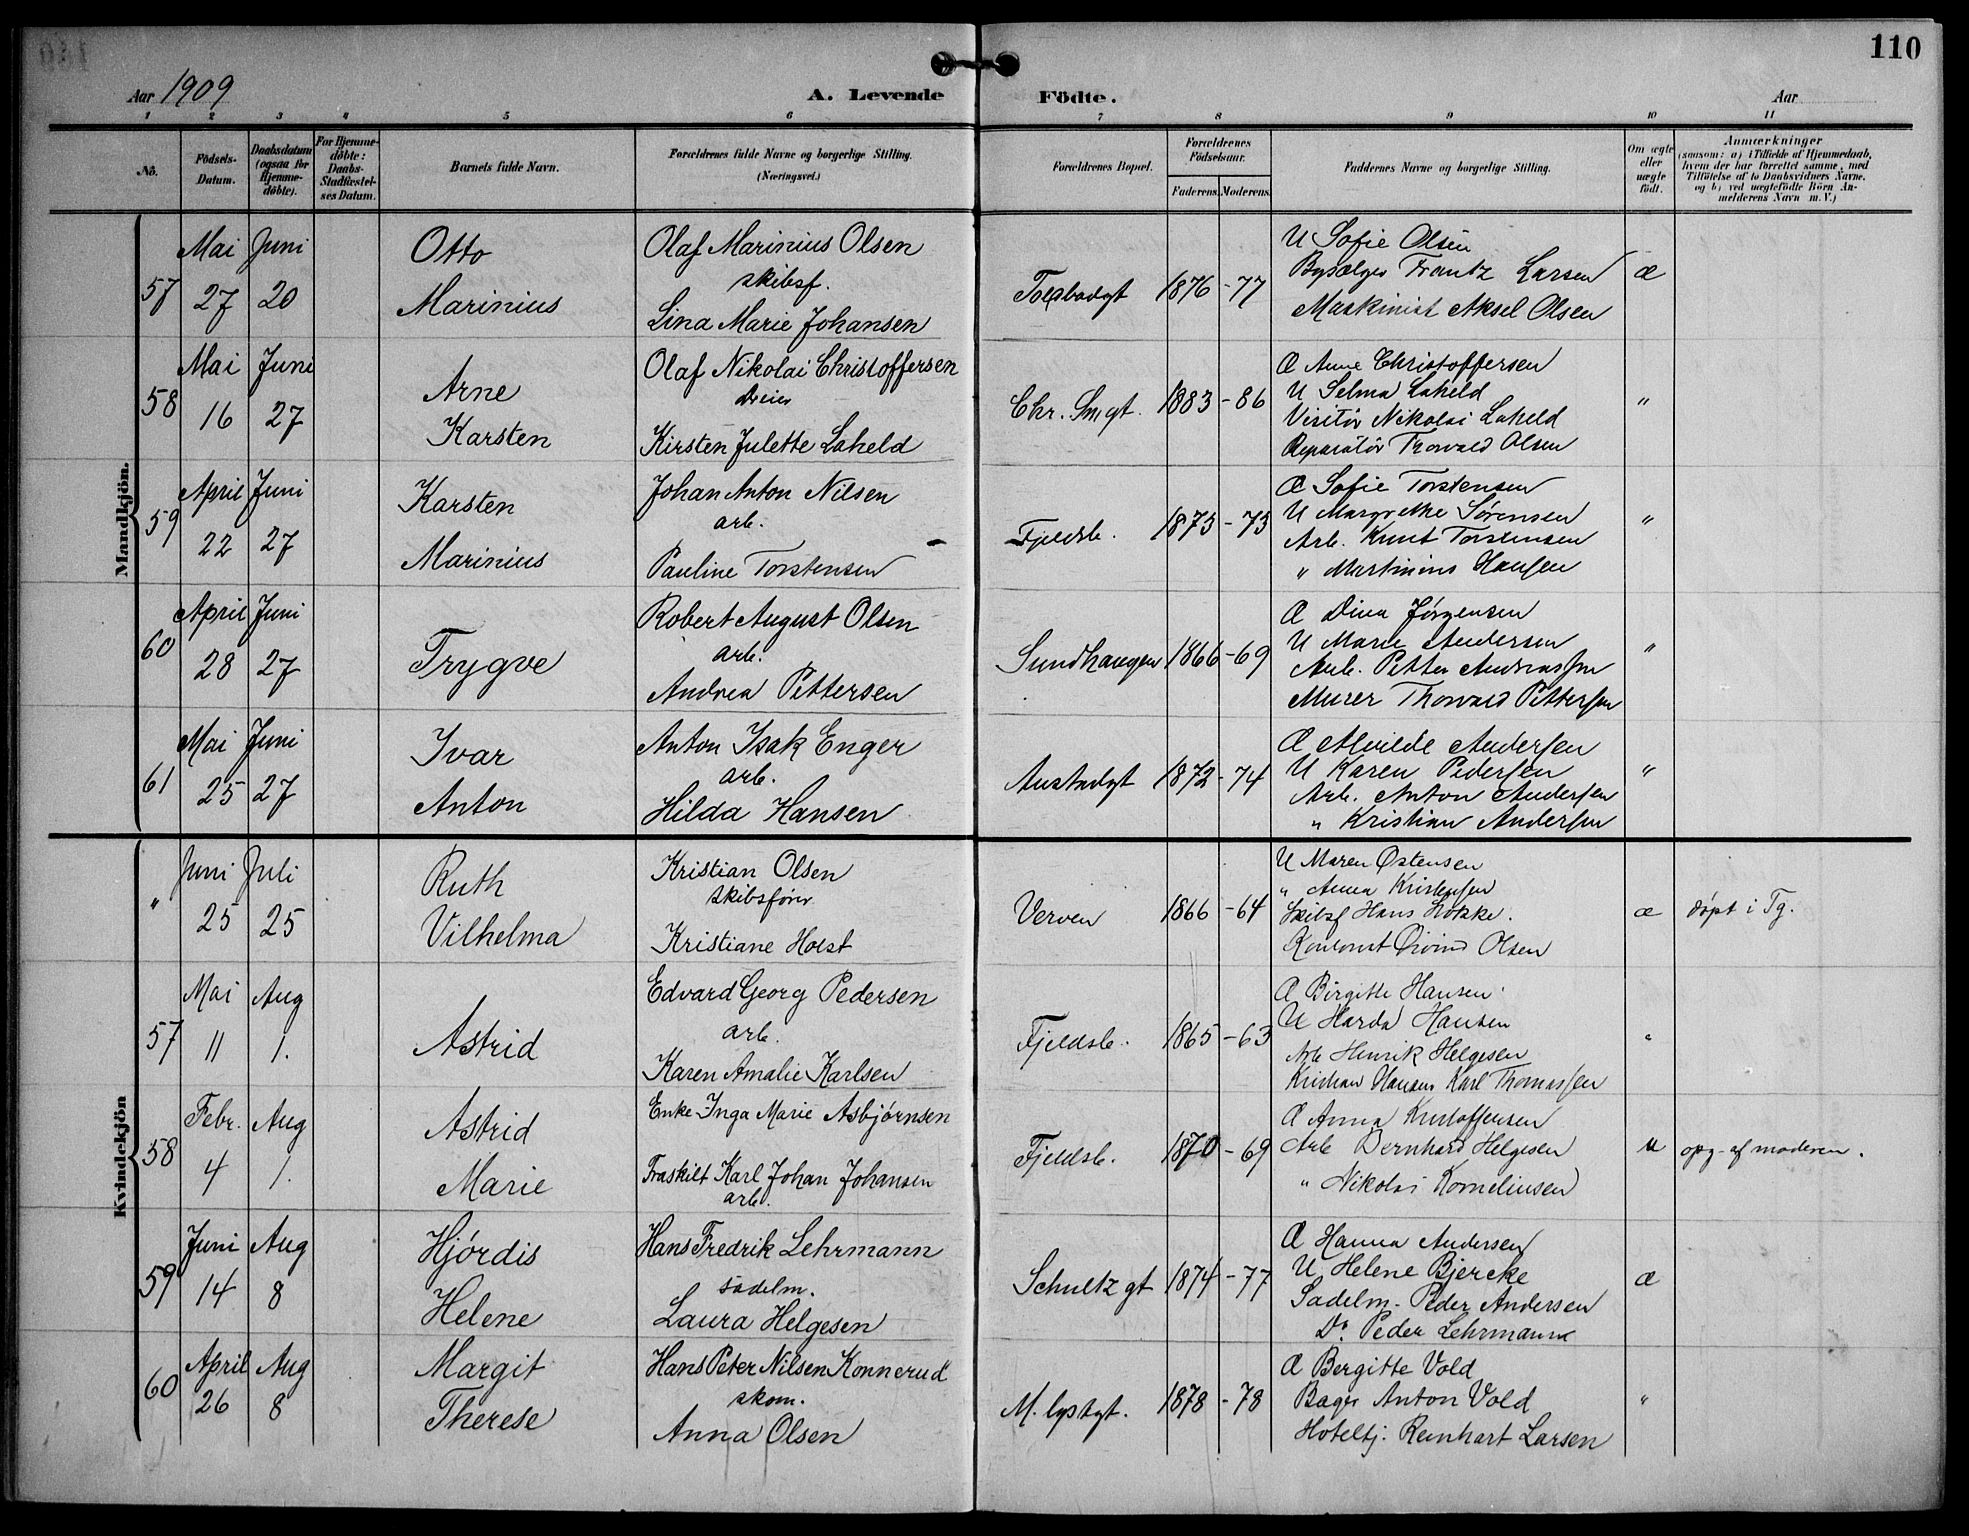 110
Aar 1909
A. Levende Födte.
Aar
1 2 3 4 5 6 7 8 9 10 11
No.
Födsels-Datum.
Daabsdatum (ogsaa for Hjemme-döbte).
For Hjemme-döbte: Daabs-Stadfæstel-ses Datum.
Barnets fulde Navn.
Forældrenes fulde Navne og borgerlige Stilling. (Næringsvei.)
Forældrenes Bopæl.
Forældrenes Födselsaar.
Faderens. Moderens.
Faddernes Navne og borgerlige Stilling.
Om ægte eller uægte födt.
Anmærkninger
(saasom: a) i Tilfælde af Hjemmedaab, hvem der har forrettet samme, med Tilföielse af to Daabsvidners Navne, og b) ved uægtefödte Börn An-melderens Navn m. V.)
Mandkjön.
57
Mai 27
Juni 20
Otto
Marinius
Olaf Marinius Olsen
skibsf.
Lina Marie Johansen
Toldbodgt
1876 - 77
U Sofie Olsen
Bysælger Frantz Larsen
Maskinist Aksel Olsen
Æ
58
Mai 16
Juni 27
Arne
Karsten
Olaf Nikolai Christoffersen
Dreier
Kirsten Julette Laheld
Chr. Smgt.
1883 - 86
Æ Anne Christoffersen
U Selma Laheld
Visitør Nikolai Laheld
Reparatør Thorvald Olsen
"
59
April 22
Juni 27
Karsten
Marinius
Johan Anton Nilsen
arb.
Pauline Torstensen
Fjeldsb.
1875 - 73
Æ Sofie Torstensen
U Margrethe Sørensen
Arb. Knut Torstensen
" Martinius Hansen
"
60
April 28
Juni 27
Trygve
Robert August Olsen
arb.
Andrea Pettersen
Sundhaugen
1866 - 69
Æ Dina Jørgensen
U Marie Andersen
Arb. Petter Andreassen
Murer Thorvald Pettersen
"
61
Mai 25
Juni 27
Ivar
Anton
Anton Isak Enger
arb.
Hilda Hansen
Austadgt
1872 - 74
Æ Alvilde Andersen
U Karen Pedersen
Arb. Anton Andersen
" Kristian Andersen
"
Kvindekjön
"
Juni 25
Juli 25
Ruth
Vilhelma
Kristian Olsen
skibsfører
Kristiane Holst
Verven
1866 - 64
U Maren Østensen
" Anna Kristensen
Skibsf Hans
Kontorist Øivind Olsen
æ
døpt i Tg.
57
Mai 11
Aug 1.
Astrid
Edvard Georg Pedersen
arb.
Karen Amalie Karlsen
Fjeldsb.
1865 - 63
Æ Birgitte Hansen
U Harda Hansen
Arb Henrik Helgesen
Kristian Hansen Karl Thomassen
"
58
Febr. 4
Aug 1.
Astrid
Marie
Enke Inga Marie Asbjørnsen
Fraskilt Karl Johan Johansen
arb.
Fjeldsb.
1870 - 69
Æ Anna Kristoffersen
Arb Bernhard Helgesen
" Nikolai Korneliusen
U
opg. af moderen.
59
Juni 14
Aug 8
Hjördis
Helene
Hans Fredrik Lehrmann
sadelm.
Laura Helgesen
Schultz gt
1874 - 77
Æ Hanna Andersen
U Helene Bjercke
Sadelm. Peder Andersen
Do. Peder Lehrmann
æ
60
April 26
Aug 8
Margit
Therese
Hans Peter Nilsen Konnerud
skom.
Anna Olsen
M. lystgt.
1878 - 78
Æ Bergitte Vold
Bager Anton Vold
Hoteltj. Reinhart Larsen
"